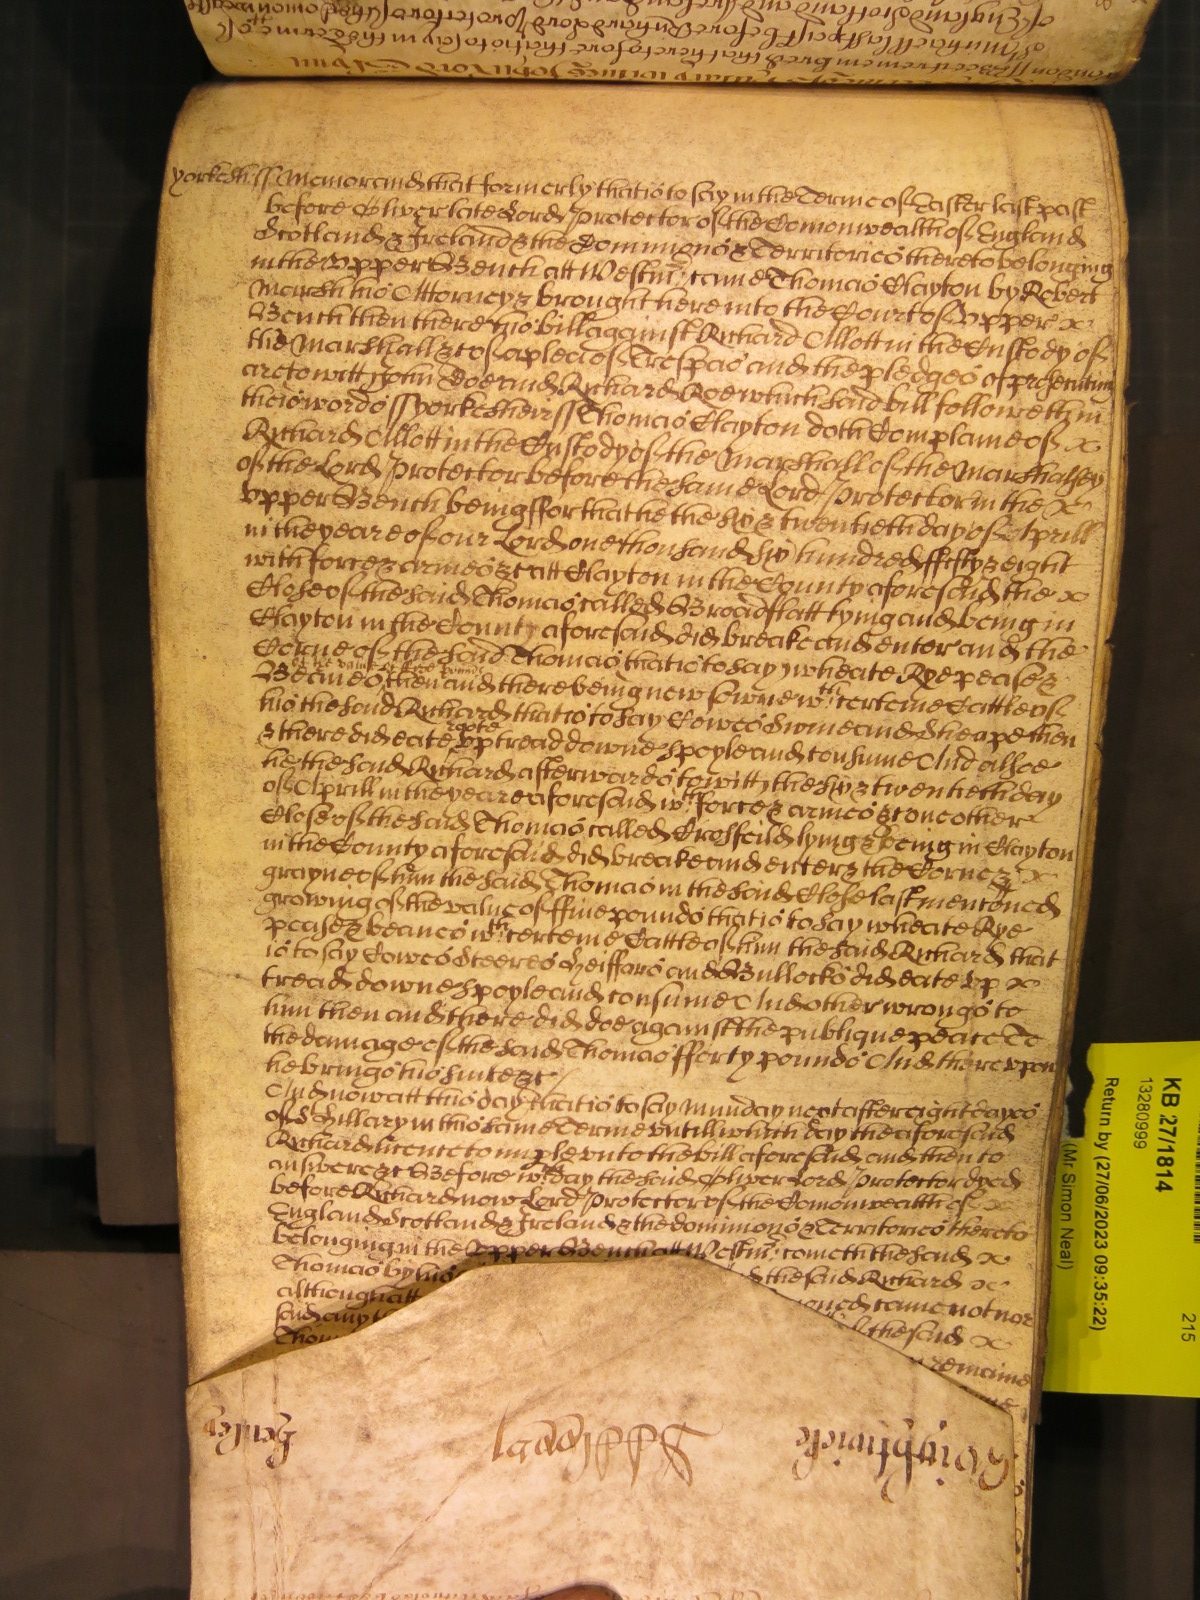 yorkeshi ss Memorand that formerly that is to say in the Terme of Easter last past
before Oliver late Lord Protector of the Comonwealth of England
Scotland & Ireland & the Dominions & Territories thereto belonging
in the Upper Bench att Westmr: came Thomas Clayton by Robert
Marsh his Attorney & brought here into the Court of Upper x
Bench then there his bill against Richard Allott in the Custody of
the Marshall &c of a plea of Trespas and the pledges of prosecution
are to witt John Doe and Richard Roe which said bill followeth in
theis words ss Yorkesheir ss Thomas Clayton doth Complaine of x
Richard Allott in the Custody of the Marshall of the Marshalsey
of the Lord Protector before the same Lord Protector in the x
Upper Bench being ffor that he the six & twentieth day of Aprill
in the yeare of our Lord one thousand six hundred ffifty & eight
with force & armes &c att Clayton in the County aforesaid the x
Close of the said Thomas called Broadflatt lying and being in
Clayton in the County aforesaid did breake and enter and the
Corne of the said Thomas that is to say wheate Rye pease &
of the value of five pounds
Beanes then and there being new sowne wth: certeine Cattle of
his the said Richard that is to say Cowes Swine and Sheepe then
roote
& there did eate up tread downe spoyle and consume And alsoe
he the said Richard afterwards to witt the six & twentieth day
of Aprill in the yeare aforesaid wth: force & armes &c one other
Close of the said Thomas called Crosfeild lying & being in Clayton
in the County aforesaid did breake and enter & the Corne & x
grayne of him the said Thomas in the said Close last mentoned
growing of the value of ffive pounds that is to say wheate Rye
pease & beanes wth: certeine Cattle of him the said Richard that
is to say Cowes Steeres Heiffars and Bullocks did eate up x
tread downe spoyle and consume And other wrongs to
him then and there did doe against the publique peace To
the damage of the said Thomas fforty pounds And thereupon
he brings his suite &c
And now att this day that is to say Munday next after eight dayes
of St Hillary in this same Terme untill which day the aforesaid
Richard licence to imple unto the bill aforesaid and then to
answere &c Before wch day the said Oliver Lord Protector dyed
before Richard now Lord Protector of the Comonwealth of x
England Scotland & Ireland & the dominions & Territories thereto
belonging in the Upper Bench att Westmr: cometh the said x
Thomas by his the said Richard x
although att came not nor
said any th the said x
Thom remaine
KB 27/1814
13280999
215
Return by (27/06/2023 09:35:22)
(Mr Simon Neal)